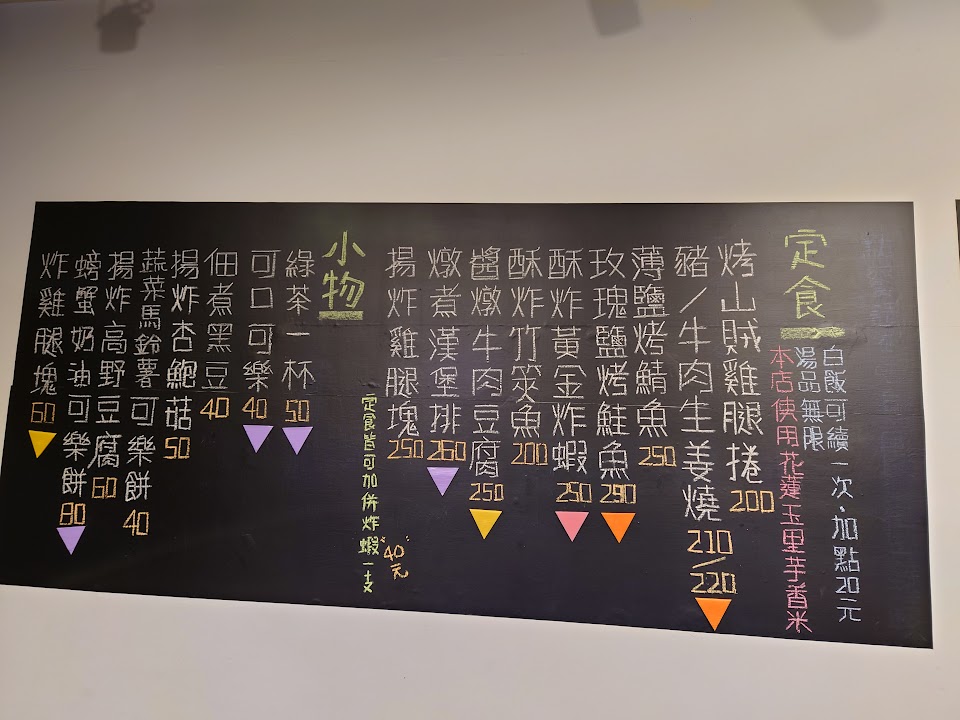 定食
白飯可續一次、加點20元
湯品無限
本店使用花蓮玉里芋香米
烤山賊雞腿捲 200
豬/牛肉生姜燒 210/220
薄鹽烤鯖魚 250
玫瑰鹽烤鮭魚 290
酥炸黃金炸蝦 250
酥炸竹筴魚 200
醬燉牛肉豆腐 250
燉煮漢堡排 260
揚炸雞腿塊 250
定食皆可加併炸蝦一支"40元"
小物
綠茶一杯 50
可口可樂 40
佃煮黑豆 40
揚炸杏鮑菇 50
蔬菜馬鈴薯可樂餅 40
揚炸高野豆腐 60
螃蟹奶油可樂餅 80
炸雞腿塊 60